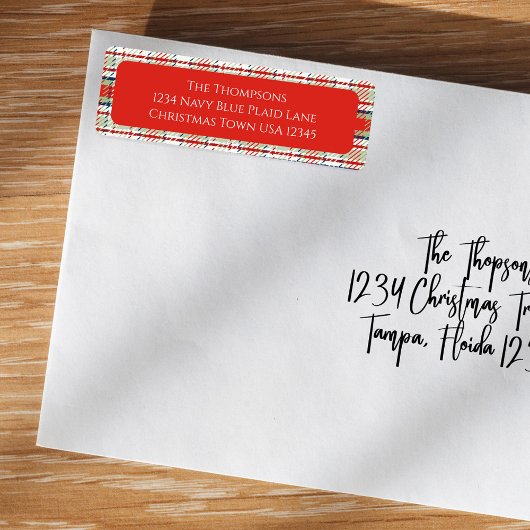 The Thompsons
1234 Navy Blue Plaid Lane
Christmas Town USA 12345
The Thopson
1234 Christmas Tr
Tampa, Floida 123